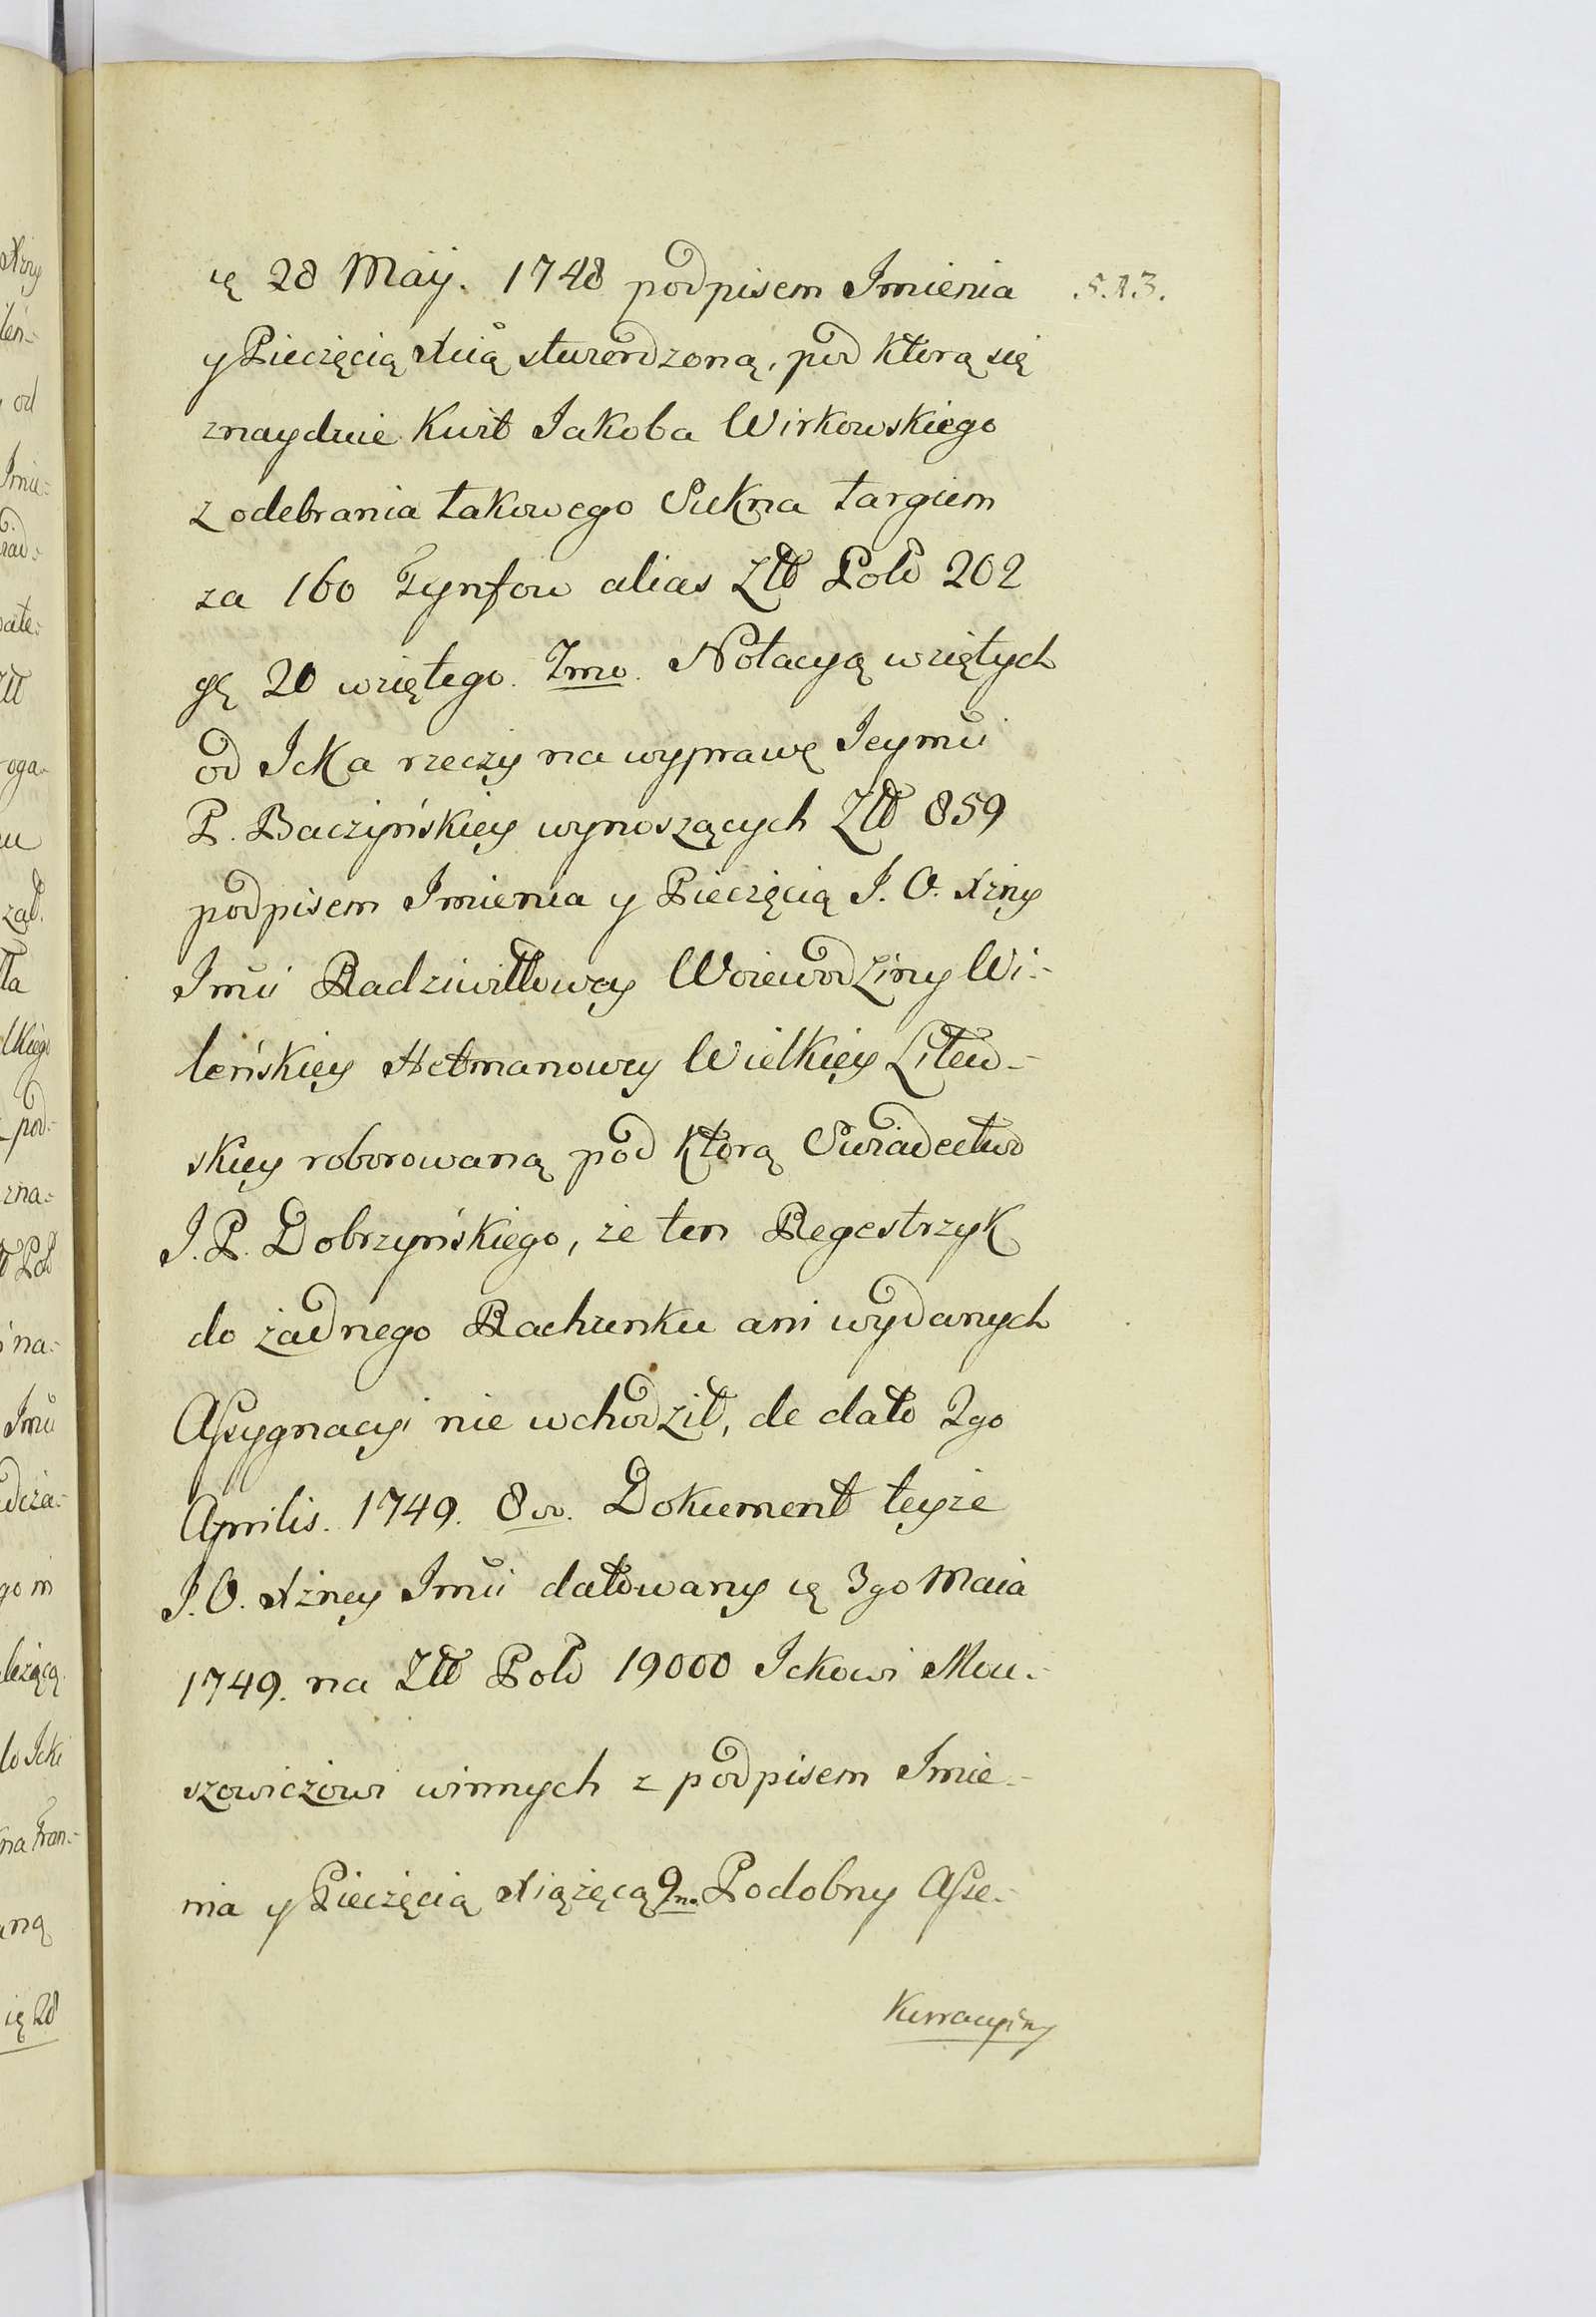 ię 28 Maij. 1748 podpisem Imienia
S. 13.
y Pieczęcią Xcią stwierdzoną, pod ktorą się
znaydzie Kwit Jakoba Wirkowskiego
z odebrania takowego Sukna targiem
za 160 Tynfow alias Złł Pols 202
gę 20 wziętego. 7mo. Notacyą wziętych
od Icka rzeczy na wyprawę Jeymći
P. Baczyńskiey wynoszących Złł 859
podpisem Imienia y Pieczęcią J. O. Xzny
Imći Radziwiłłowey Woiewodziny Wi-
leńskiey Hetmanowey Wielkiey Litew-
skiey roborowaną pod ktorą Swiadectwo
J. P. Dobrzyńskiego, że ten Regestrzyk
do żadnego Rachunku ani wydanych
Assygnacyi nie wchodził, de dato 2go
Aprilis. 1749. 8vo. Dokument teyże
J. O. Xżney Imći datowany ię 3go Maia
1749. na Złł Pols 19000 Ickowi Mou-
szowiczowi winnych z podpisem Imie-
nia y Pieczęcią Xiążęcą 9no. Podobny Asse-
Kuracyiny